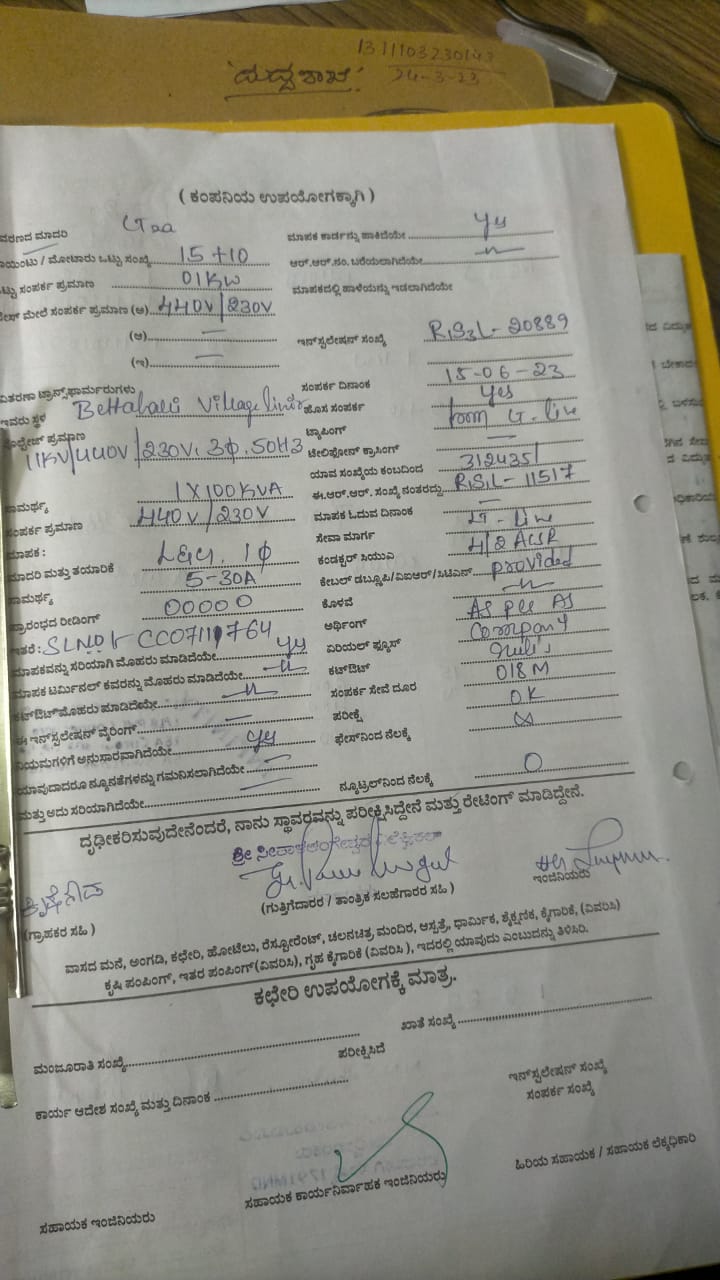 13111103230143
24-3-23
( ಕಂಪನಿಯ ಉಪಯೋಗಕ್ಕಾಗಿ )
ವರಣದ ಮಾದರಿ
ಮಾಪಕ ಕಾರ್ಡನ್ನು ಹಾಕಿದೆಯೇ yes
ಾಯಿಂಟು / ಮೋಟಾರು ಒಟ್ಟು ಸಂಖ್ಯೆ 15+10 ಆರ್.ಆರ್.ನಂ. ಬರೆಯಲಾಗಿದೆಯೇ —"—
ಟ್ಟು ಸಂಪರ್ಕ ಪ್ರಮಾಣ 01KW ಮಾಪಕದಲ್ಲಿ ಹಾಳೆಯನ್ನು ಇಡಲಾಗಿದೆಯೇ
ೇಸ್ ಮೇಲೆ ಸಂಪರ್ಕ ಪ್ರಮಾಣ (ಅ) 440V/230V
(ಆ) — ಇನ್‌ಸ್ಟಲೇಷನ್ ಸಂಖ್ಯೆ R1S3L-20889
(ಇ) —
ವಿತರಣಾ ಟ್ರಾನ್ಸ್‌ಫಾರ್ಮರುಗಳು ಸಂಪರ್ಕ ದಿನಾಂಕ 15-06-23
ಇವರು ಸ್ಥಳ Bettahalli Village limit ಹೊಸ ಸಂಪರ್ಕ Yes
ವೋಲ್ಟೇಜ್ ಪ್ರಮಾಣ 11KV/440V/230V. 3Φ. 50HZ ಟ್ಯಾಪಿಂಗ್ from LT. line
ಟೆಲಿಫೋನ್ ಕ್ರಾಸಿಂಗ್ —
ಯಾವ ಸಂಖ್ಯೆಯ ಕಂಬದಿಂದ 312435/
ಸಾಮರ್ಥ್ಯ 1X100KVA ಈ.ಆರ್.ಆರ್. ಸಂಖ್ಯೆ ನಂತರದ್ದು R1S1L-11517
ಸಂಪರ್ಕ ಪ್ರಮಾಣ 440V/230V ಮಾಪಕ ಓದುವ ದಿನಾಂಕ —
ಮಾಪಕ : ಸೇವಾ ಮಾರ್ಗ LT-Line
ಮಾದರಿ ಮತ್ತು ತಯಾರಿಕೆ L&G, 1Φ ಕಂಡಕ್ಟರ್ ಸಿಯುವಿ 4/2 ACSR
ಸಾಮರ್ಥ್ಯ 5-30A ಕೇಬಲ್ ಡಬ್ಲೂಪಿ/ವಿಐಆರ್/ಸಿಟಿಎಸ್ provided
ಪ್ರಾರಂಭದ ರೀಡಿಂಗ್ 00000 ಕೊಳವೆ —"—
ಇತರೆ : SLNO1-CC07111764 ಅರ್ಥಿಂಗ್ As per As
ಮಾಪಕವನ್ನು ಸರಿಯಾಗಿ ಮೊಹರು ಮಾಡಿದೆಯೇ yes ಏರಿಯಲ್ ಫ್ಯೂಸ್ Company
ಮಾಪಕ ಟರ್ಮಿನಲ್ ಕವರನ್ನು ಮೊಹರು ಮಾಡಿದೆಯೇ —"— ಕಟ್‌ಔಟ್
ಕಟ್‌ಔಟ್ ಮೊಹರು ಮಾಡಿದೆಯೇ —"— ಸಂಪರ್ಕ ಸೇವೆ ದೂರ 018M
ಈ ಇನ್‌ಸ್ಟಲೇಷನ್ ವೈರಿಂಗ್ — ಪರೀಕ್ಷೆ OK
ನಿಯಮಗಳಿಗೆ ಅನುಸಾರವಾಗಿದೆಯೇ yes ಫೇಸ್‌ನಿಂದ ನೆಲಕ್ಕೆ
ಯಾವುದಾದರೂ ನ್ಯೂನತೆಗಳನ್ನು ಗಮನಿಸಲಾಗಿದೆಯೇ —
ಮತ್ತು ಅದು ಸರಿಯಾಗಿದೆಯೇ — ನ್ಯೂಟ್ರಲ್‌ನಿಂದ ನೆಲಕ್ಕೆ 0
ದೃಢೀಕರಿಸುವುದೇನೆಂದರೆ, ನಾನು ಸ್ಥಾವರವನ್ನು ಪರೀಕ್ಷಿಸಿದ್ದೇನೆ ಮತ್ತು ರೇಟಿಂಗ್ ಮಾಡಿದ್ದೇನೆ.
(ಗ್ರಾಹಕರ ಸಹಿ ) (ಗುತ್ತಿಗೆದಾರರ / ತಾಂತ್ರಿಕ ಸಲಹೆಗಾರರ ಸಹಿ ) ಇಂಜಿನಿಯರು
ವಾಸದ ಮನೆ, ಅಂಗಡಿ, ಕಛೇರಿ, ಹೋಟೆಲು, ರೆಸ್ಟೋರೆಂಟ್, ಚಲನಚಿತ್ರ ಮಂದಿರ, ಆಸ್ಪತ್ರೆ, ಧಾರ್ಮಿಕ, ಶೈಕ್ಷಣಿಕ, ಕೈಗಾರಿಕೆ, (ವಿವರಿಸಿ)
ಕೃಷಿ ಪಂಪಿಂಗ್, ಇತರ ಪಂಪಿಂಗ್(ವಿವರಿಸಿ), ಗೃಹ ಕೈಗಾರಿಕೆ (ವಿವರಿಸಿ ), ಇದರಲ್ಲಿ ಯಾವುದು ಎಂಬುದನ್ನು ತಿಳಿಸಿರಿ.
ಕಛೇರಿ ಉಪಯೋಗಕ್ಕೆ ಮಾತ್ರ.
ಮಂಜೂರಾತಿ ಸಂಖ್ಯೆ ಖಾತೆ ಸಂಖ್ಯೆ
ಪರೀಕ್ಷಿಸಿದೆ
ಕಾರ್ಯ ಆದೇಶ ಸಂಖ್ಯೆ ಮತ್ತು ದಿನಾಂಕ ಇನ್‌ಸ್ಟಲೇಷನ್ ಸಂಖ್ಯೆ
ಸಂಪರ್ಕ ಸಂಖ್ಯೆ
ಸಹಾಯಕ ಇಂಜಿನಿಯರು ಸಹಾಯಕ ಕಾರ್ಯನಿರ್ವಾಹಕ ಇಂಜಿನಿಯರು ಹಿರಿಯ ಸಹಾಯಕ / ಸಹಾಯಕ ಲೆಕ್ಕಧಿಕಾರಿ